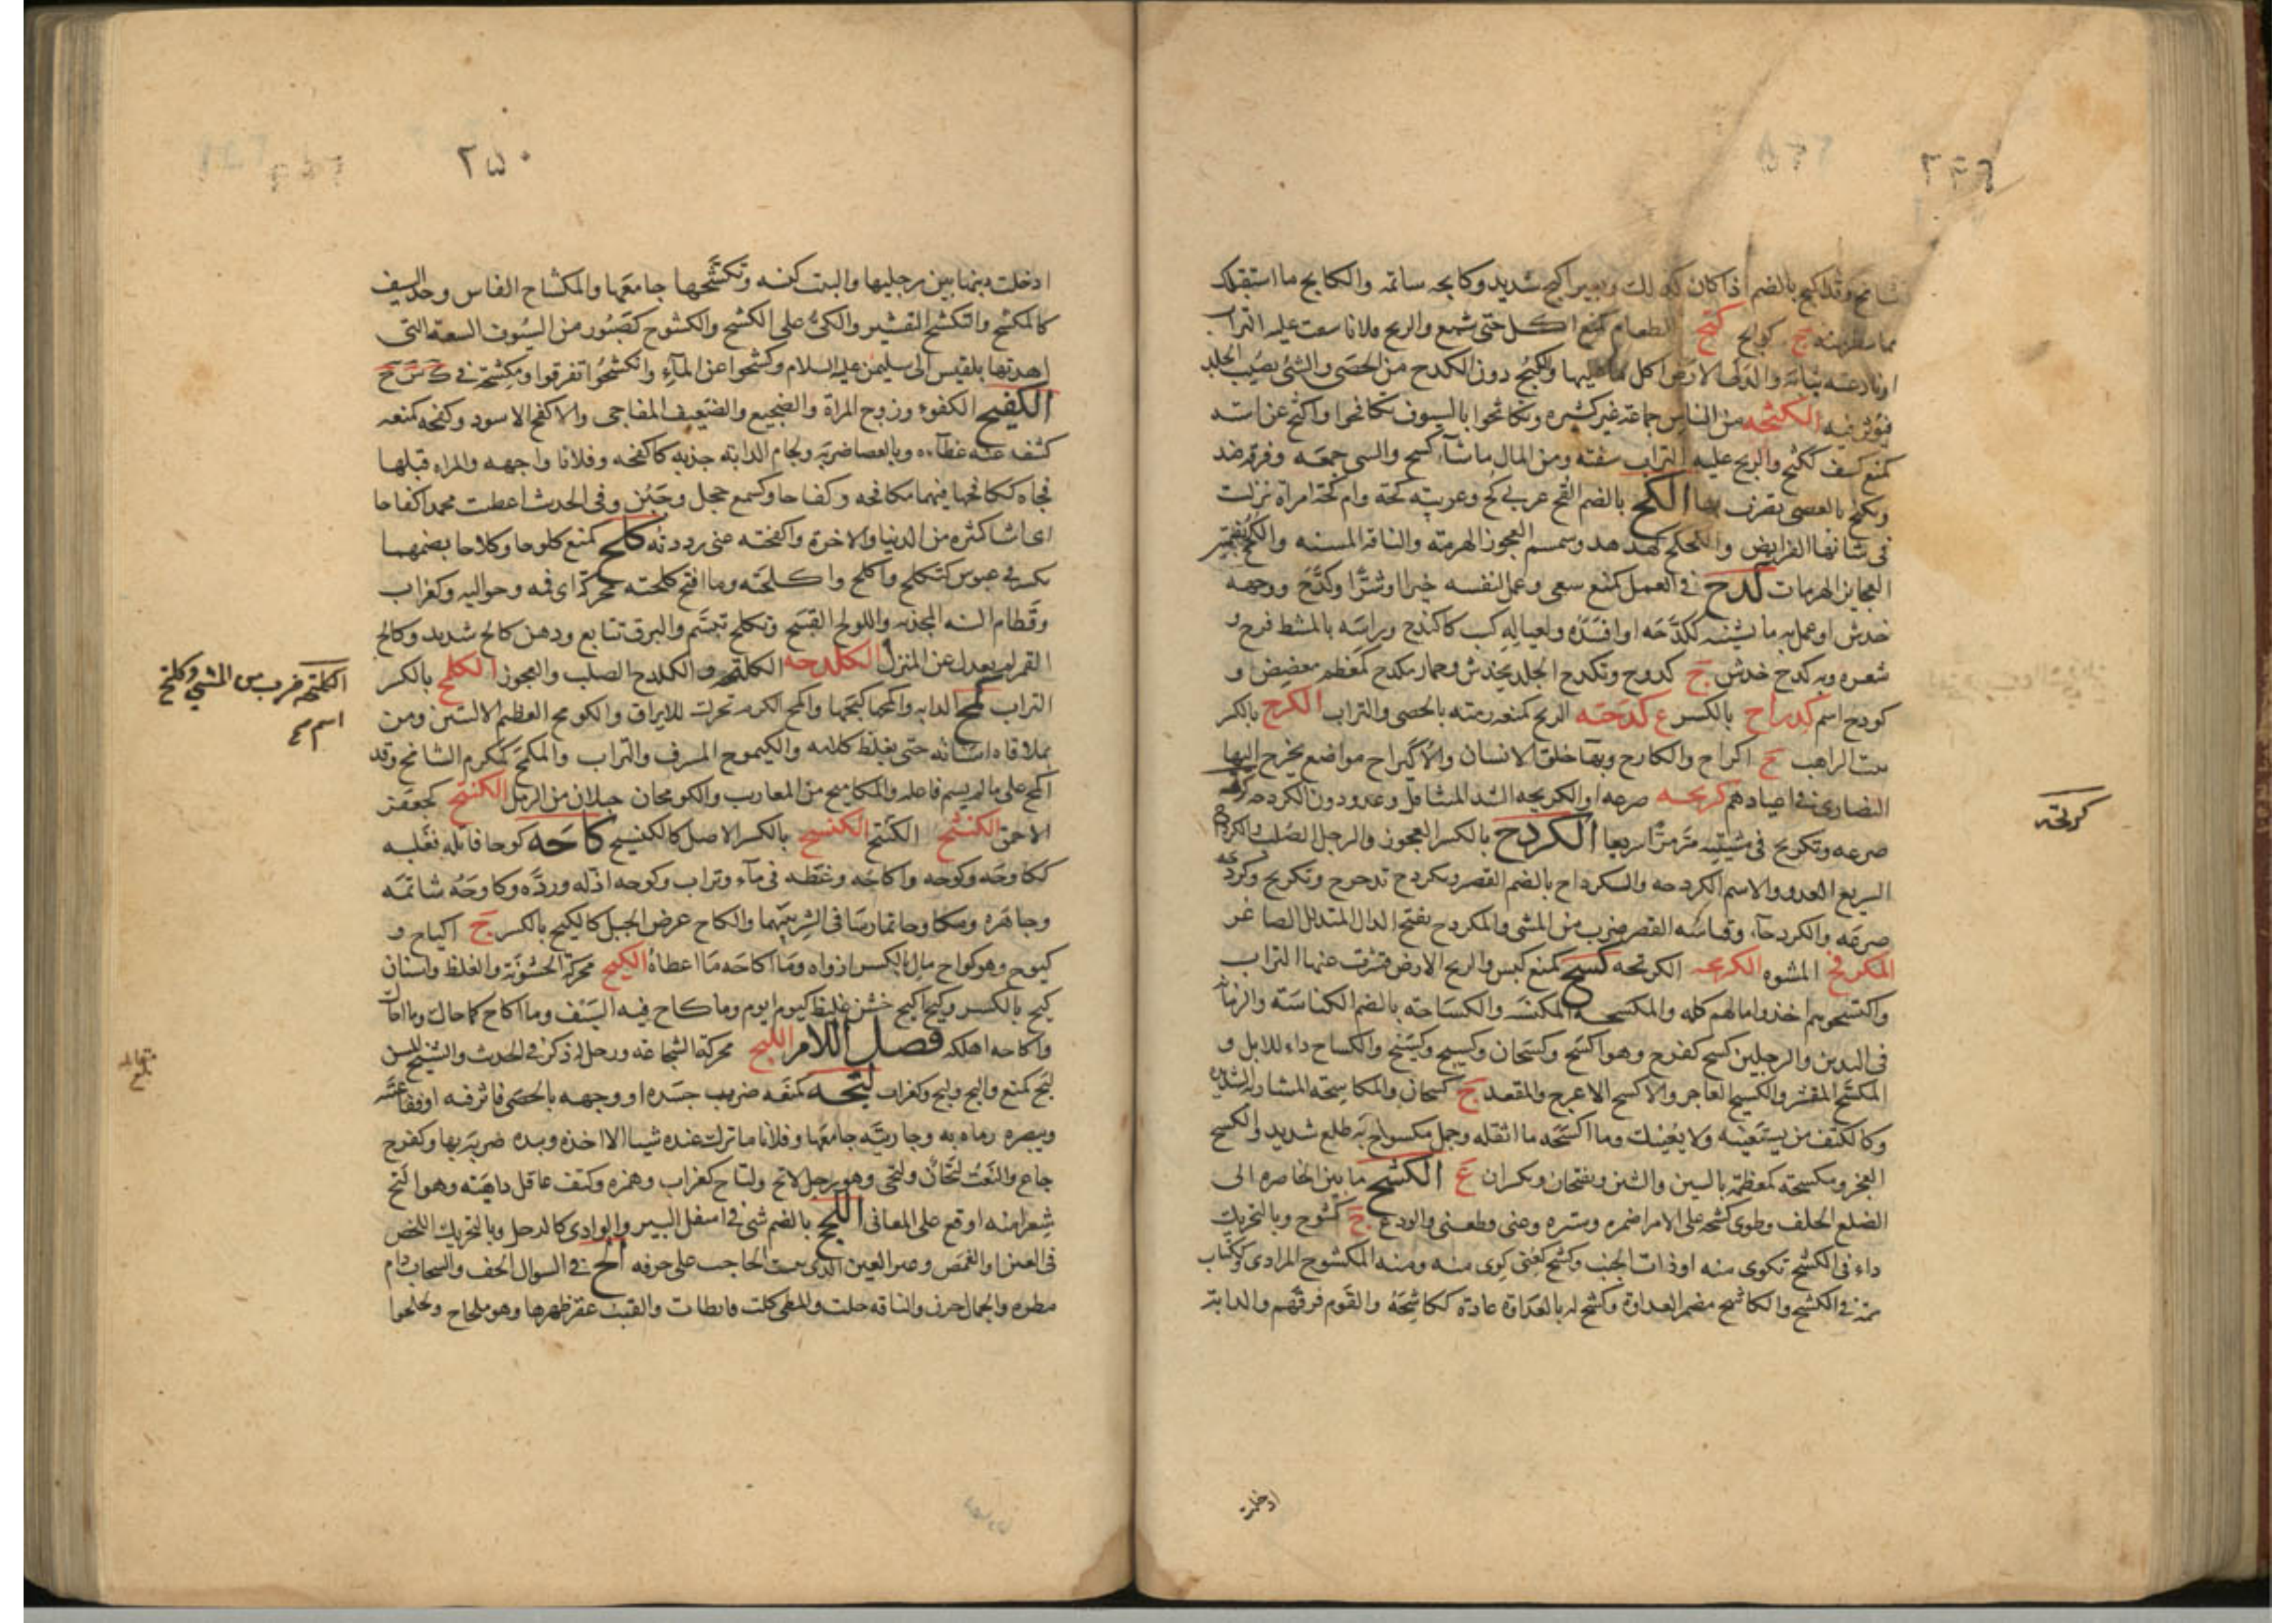 شامخ وقد اكبح بالضم اذا كان كذلك وبعير اكبح شديد وكابحه شاتمه والكابح ما استقبلك
مما يتطير منه ج كوابح كتح الطعام كمنع اكل حتى شبع والريح فلانا سفت عليه التراب
او نازعته ثيابه والدبى الارض اكل ما عليها والكتح دون الكدح من الحصى والشئ يصيب الجلد
فيؤثر فيه الكثحه من الناس جماعة غير كثيره وتكاثحوا بالسيوف تكافحوا واكثح عن استه
كمنع كشف ككثح والريح عليه التراب سفته ومن المال ما شآء كسح والشي جمعه وفرقه ضد
وتكثح بالحصى تضرب بها الكح بالضم القح عربي كح وعربيه كحة وام كحة امراة نزلت
في شانها الفرايض والكحكح كهدهد وسمسم العجوز الهرمة والناقة المسنه والكحح بضمتين
العجايز الهرمات كدح في العمل كمنع سعى وعمل لنفسه خيرا او شرا وكدح ووجهه
خدش او عمل به ما يشينه ككدحه او افسده ولعياله كسب كاكتدح وراسه بالمشط فرج
شعره وبه كدح خدش ج كدوح وتكدح الجلد تخدش وحمار مكدح كمعظم معضض و
كودح اسم كدراح بالكسر ع كدحته الريح كمنعه رمته بالحصى والتراب الكرح بالكسر
بيت الراهب ج اكراح والكارح وبها خلق الانسان والاكيراح مواضع يخرج اليها
النصارى في اعيادهم كربحه صرعه او الكربحه الشد المتثاقل وعدو دون الكردحه كرتحه
صرعه وتكرتح في مشيته مر مرا سريعا الكردح بالكسر العجوز والرجل الصلب والكردحة
السريع العدو والاسم الكردحه والكرداح بالضم القصير وتكردح تدحرج وتكرتح وكردحه
صرعه والكردحآء وقياسه القصر ضرب من المشى والمكردح بفتح الدال المتذلل المتصاغر
المكرفح المشوه الكرمحه الكرتحه كسح كمنع كنس والريح الارض قشرت عنها التراب
واكتسحوهم اخذوا مالهم كله والمكسحة المكنسة والكساحة بالضم الكناسة والزمانة
في اليدين والرجلين كسح كفرح وهو اكسح وكسحان وكسيح وكسح والكساح داء للابل و
المكسح المقشر والكسيح العاجز والاكسح الاعرج والمقعد ج كسحان والمكاسحة المشاربة الشديدة
وكالكتف من يستعينه ولا يعينك وما اكسحه ما اثقله وجمل مكسوح به ظلع شديد والكسح
العجز ومكسحة كمعظمة بالسين والشين وبفتحان ويكسران ع الكشح ما بين الخاصره الى
الضلع الخلف وطوى كشحه على الامر اضمره وستره وعنى وقطعنى والودع ج كشوح وبالتحريك
داء في الكشح تكوى منه او ذات الجنب وكشح كعنى كوى منه ومنه المكشوح المرادى وككتاب
سمة في الكشح والكاشح مضمر العداوة وكشح له بالعداوة عاداه ككاشحه والقوم فرقهم والدابة
كرتحة
ادخلت
٢٥٠
ادخلت ذنبها بين رجليها والبيت كنسه وتكشحها جامعها والمكشاح الفاس وحد السيف
كالمكشح والتكشيح التقشير والكى على الكشح والكشوح كصبور من السيوف السبعة التى
اهدتها بلقيس الى سليمن عليه السلام وكشحوا عن المآء وانكشحوا تفرقوا ومكشحة في ك س ح
الكفيح الكفوء وزوج المراة والضجيع والضيف المفاجى والاكفح الاسود وكفحه كمنعه
كشف عنه غطآءه وبالعصا ضربه ولجام الدابة جذبه كاكفحه وفلانا واجهه والمراه قبلها
فجاه ككافحها فيهما مكافحه وكفاحا وكسمع خجل وجبن وفى الحديث اعطيت محمدا كفاحا
اى اشيا كثيره من الدنيا والاخرة واكفحته عنى رددته كلح كمنع كلوحا وكلاحا بضمهما
تكشر في عبوس كتكلح واكلح واكلحته وما اقبح كلحته محركة اى فمه وحواليه وكغراب
وقطام السنه المجدبه والكولح القبيح وتكلح تبسم والبرق تتابع ودهر كالح شديد وكالح
القمر لم يعدل عن المنزل الكلدحه الكلتحه والكلدح الصلب والعجوز الكلمح بالكسر
التراب كمح الدابه واكمحها كبحها واكمح الكرم تحرك للايراق والكومح العظيم الاليتين ومن
تملا فاه اسنانه حتى يغلظ كلامه والكيموح المشرف والتراب والمكمح كمكرم الشامخ وقد
اكمح على ما لم يسم فاعله والمكاميح من المقارب والكومحان حبلان من الرمل الكنتح كجعفر
الاحمق الكنثح الكنتح الكنسح بالكسر الاصل كالكنسيح كاحه كوحا قاتله فغلبه
ككاوحه وكوحه واكاحه وغطه في مآء وتراب وكوحه اذله ورده وكاوحه شاتمه
وجاهره وتكاوحا تمارسا في الشر بينهما والكاح عرض الجبل كالكيح بالكسر ج اكياح و
كيوح وهو كواح مال بالكسر ازواه وما اكاحه ما اعطاه الكيح محركة الخشونة والغلظ واسنان
كيح بالكسر وكيح اكيح خشن غليظ كيوم ايوم وما كاح فيه السيف وما اكاح كما حاك وما احاك
واكاحه اهلكه فصل اللام اللبح محركة الشجاعة ورجل له ذكر في الحديث والشيخ المسن
لبح كمنع والبح ولبح وكغراب لتحه كمنعه ضرب جسده او وجهه بالحصى فاثر فيه او فقا عينه
وببصره رماه به وجاريته جامعها وفلانا ما ترك عنده شيئا الا اخذه وبيده ضربه بها وكفرح
جاع والنعت لتحان ولتحى وهو رجل لاتح ولتاح كغراب وهمزه وكتف عاقل داهية وهو التح
شعرا منه اوقع على المعانى اللجح بالضم شئ في اسفل البير والوادى كالدحل وبالتحريك اللخص
في العين او الغمص وعير العين الذى ينبت الحاجب على حرفه الح في السوال الحف والسحاب دام
مطره والجمل حرن والناقة خلات والمطى كلت فابطات والقتب عقر ظهرها وهو ملحاح ولحلحوا
الكلتحة ضرب من المشى وكلتح
اسم